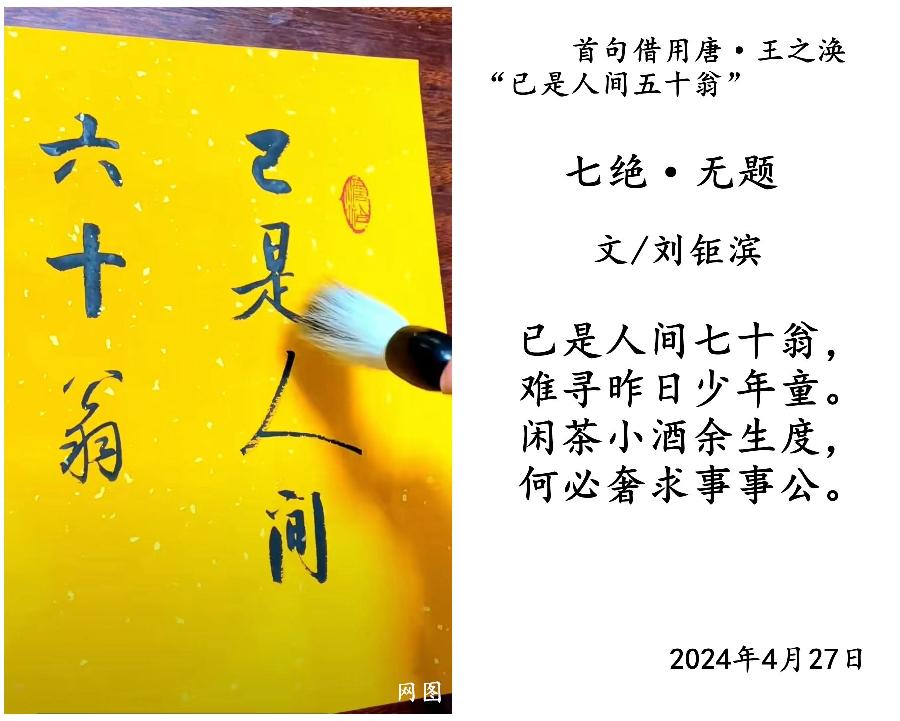 已是人间
六十翁
网图
首句借用唐·王之涣
“已是人间五十翁”
七绝·无题
文/刘钜滨
已是人间七十翁，
难寻昨日少年童。
闲茶小酒余生度，
何必奢求事事公。
2024年4月27日